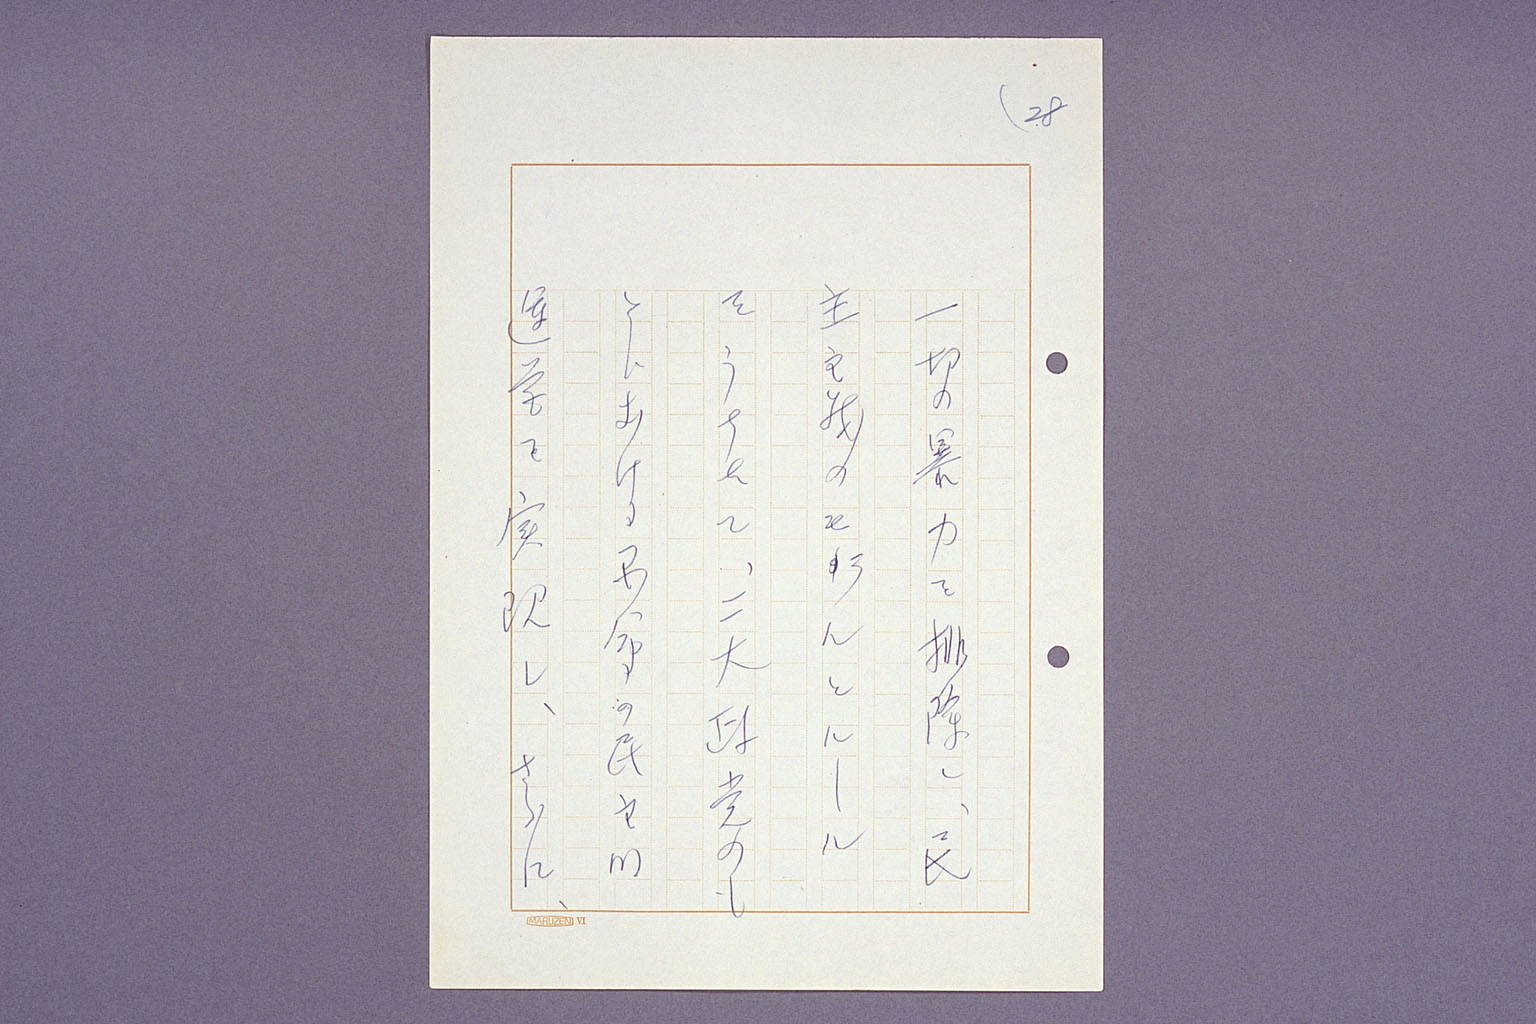 28
一切の暴力を排除し、民
主主義の とルール
をうちたて、二大政党のも
とにおける の民主的
運営を実現し、さらに、
MARUZEN VI